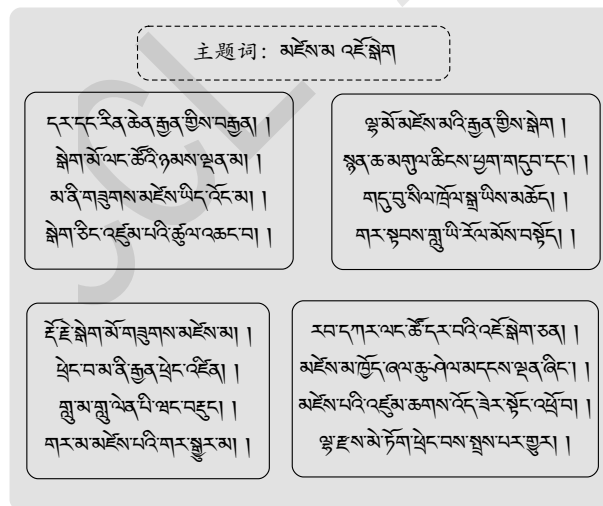 主题词：མཛེས་མ འཛོ་སྒེག
དར་དང་རིན་ཆེན་རྒྱན་གྱིས་བརྒྱན། །
སྒེག་མོ་ལང་ཚོའི་ཉམས་ལྡན་མ། །
མ་ནི་གཟུགས་མཛེས་ཡིད་འོང་མ། །
སྒེག་ཅིང་འཛུམ་པའི་ཚུལ་འཆང་བ། །
ལྷ་མོ་མཛེས་མའི་རྒྱན་གྱིས་སྒེག །
སྙན་ཆ་མགུལ་ཆིངས་ཕྱག་གདུབ་དང་། །
གདུ་བུ་སིལ་ཁྲོལ་སྒྲ་ཡིས་མཆོད། །
གར་སྟབས་གླུ་ཡི་རོལ་མོས་བསྟོད། །
རྡོ་རྗེ་སྒེག་མོ་གཟུགས་མཛེས་མ། །
ཕྲེང་བ་མ་ནི་རྒྱན་ཕྲེང་འཛིན། །
གླུ་མ་གླུ་ལེན་པི་ཝང་བརྡུང་། །
གར་མ་མཛེས་པའི་གར་སྒྱུར་མ། །
རབ་དཀར་ལང་ཚོ་དར་བབའི་འཛོ་སྒེག་ཅན། །
མཛེས་མ་ཁྱོད་ཞལ་ཆུ་ཤེལ་མདངས་ལྡན་ཞིང་། །
མཛེས་པའི་འཛུམ་ཆགས་འོད་ཟེར་སྟོང་འཕྲོ་བ། །
ལྷ་རྫས་མེ་ཏོག་ཕྲེང་བས་སྤྲས་པར་གྱུར། །